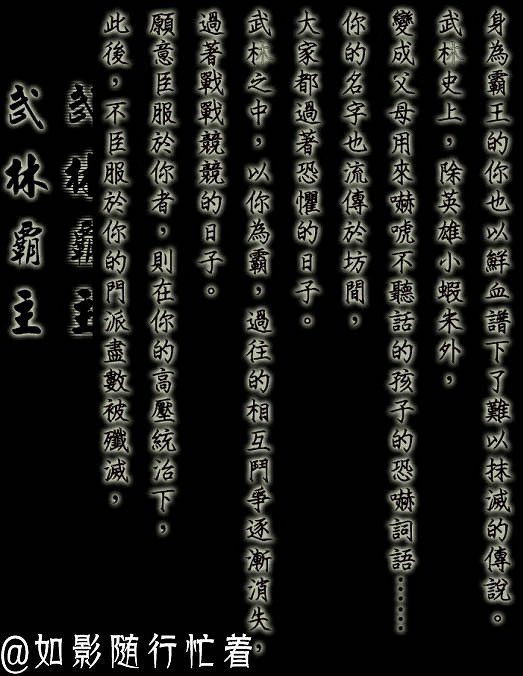 武林霸主
武林霸主
此後，不臣服於你的門派盡數被殲滅，
願意臣服於你者，則在你的高壓統治下，
過著戰戰競競的日子。
武林之中，以你為霸，過往的相互鬥爭逐漸消失，
大家都過著恐懼的日子。
你的名字也流傳於坊間，
變成父母用來嚇唬不聽話的孩子的恐嚇詞語……
武林史上，除英雄小蝦米外，
身為霸王的你也以鮮血譜下了難以抹滅的傳說。
@如影随行忙着